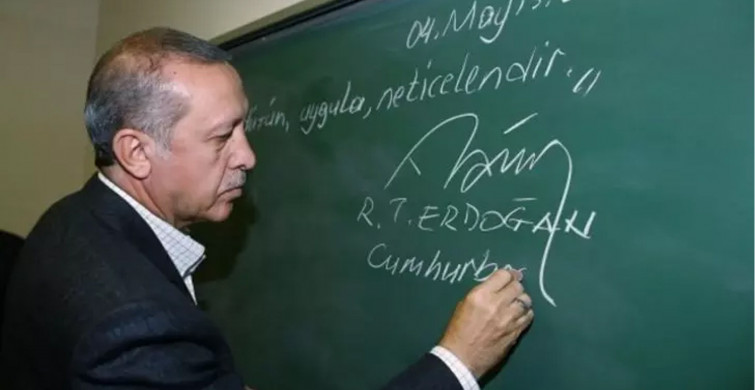 04. Mayıs.
uygula, neticelendir."
R. T. ERDOĞAN
Cumhurba